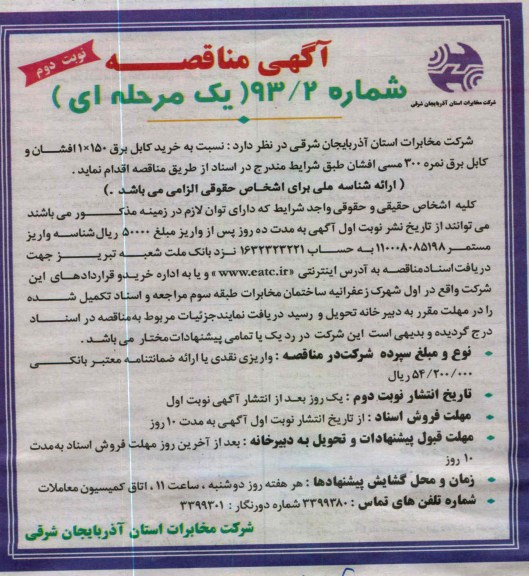 نوبت دوم
آگهی مناقصه
شماره ۹۳/۲ (یک مرحله ای)
شرکت مخابرات استان آذربایجان شرقی
شرکت مخابرات استان آذربایجان شرقی در نظر دارد : نسبت به خرید کابل برق ۱۵۰×۱ افشان و
کابل برق نمره ۳۰۰ مسی افشان طبق شرایط مندرج در اسناد از طریق مناقصه اقدام نماید .
( ارائه شناسه ملی برای اشخاص حقوقی الزامی می باشد .)
کلیه اشخاص حقیقی و حقوقی واجد شرایط که دارای توان لازم در زمینه مذکور می باشند
می توانند از تاریخ نشر نوبت اول آگهی به مدت ده روز پس از واریز مبلغ ۵۰۰۰۰ ریال شناسه واریز
مستمر ۱۱۰۰۰۸۰۸۵۱۹۸ به حساب ۱۶۳۲۳۲۳۲۲۱ نزد بانک ملت شعبه تبریز جهت
دریافت اسناد مناقصه به آدرس اینترنتی «www.eatc.ir» و یا به اداره خرید و قراردادهای این
شرکت واقع در اول شهرک زعفرانیه ساختمان مخابرات طبقه سوم مراجعه و اسناد تکمیل شده
را در مهلت مقرر به دبیر خانه تحویل و رسید دریافت نمایند جزئیات مربوط به مناقصه در اسناد
درج گردیده و بدیهی است این شرکت در رد یک یا تمامی پیشنهادات مختار می باشد .
نوع و مبلغ سپرده شرکت در مناقصه : واریزی نقدی یا ارائه ضمانتنامه معتبر بانکی
۵۴/۲۰۰/۰۰۰ ریال
تاریخ انتشار نوبت دوم : یک روز بعد از انتشار آگهی نوبت اول
مهلت فروش اسناد : از تاریخ انتشار نوبت اول آگهی به مدت ۱۰ روز
مهلت قبول پیشنهادات و تحویل به دبیرخانه : بعد از آخرین روز مهلت فروش اسناد به مدت
۱۰ روز
زمان و محل گشایش پیشنهادها : هر هفته روز دوشنبه ، ساعت ۱۱ ، اتاق کمیسیون معاملات
شماره تلفن های تماس : ۳۳۹۹۳۸۰ شماره دورنگار : ۳۳۹۹۳۰۱
شرکت مخابرات استان آذربایجان شرقی